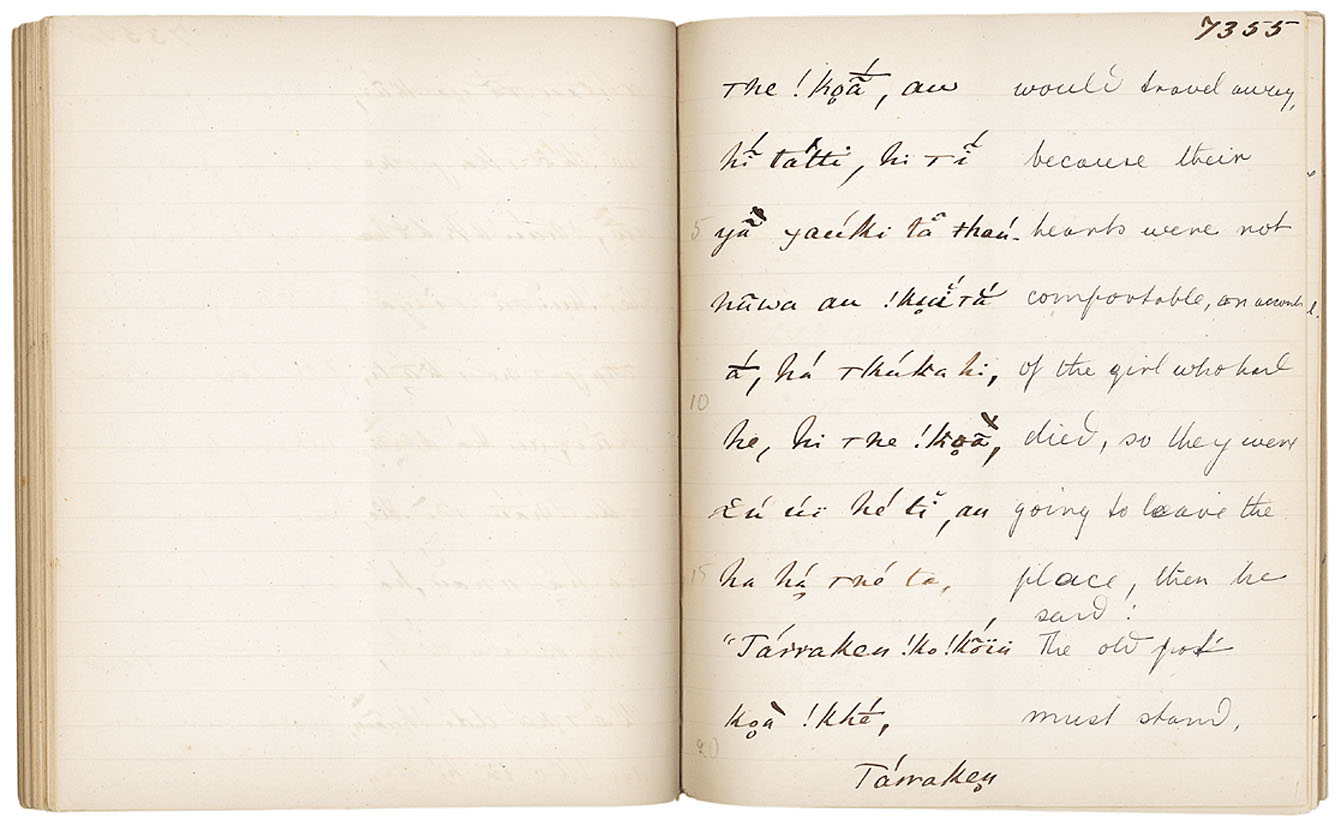 7355
ɤne !ko̥ā́, au would travel away,
hĭ́ tátti, hi ɤĭ́ because their
5 yā̀ yaúki tā̆ ɤhaú- hearts were not
nūwa au !ku̥ĭ́ ɤá comfortable, on account
á, há ɤkúka hi, of the girl who had
10
he, hi ɤne !ko̥ā̀, died, so they were
úï hé tĭ, au going to leave the
15 ha hḁ́ ɤné ta, place, then he
said:
"Tárraken !ko!kṍïn The old pot
ko̥à !khé, must stand,
20
Tárrake̥n